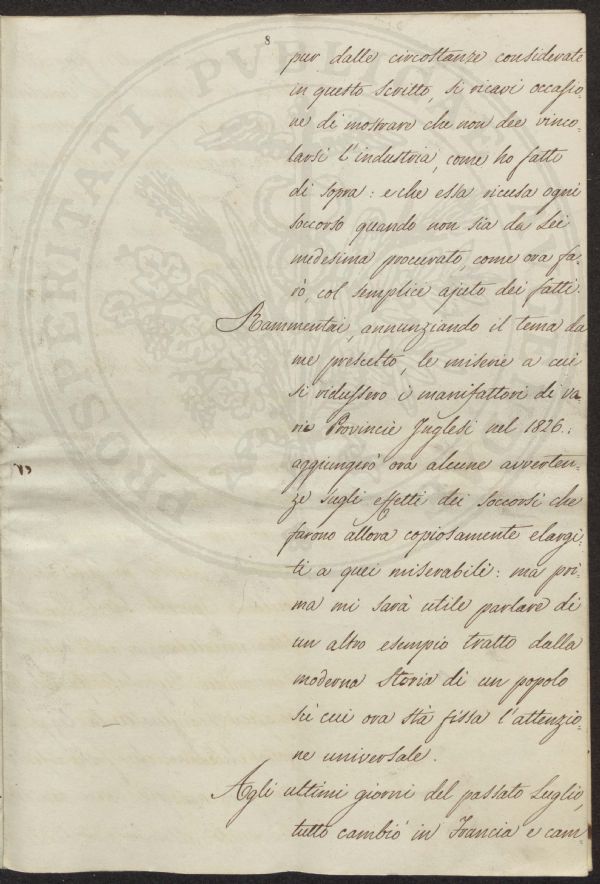 8
pur dalle circostanze considerate
in questo scritto, si ricavi occasio-
ne di mostrare che non dee vinco-
larsi l'industria, come ho fatto
di sopra: e che essa ricusa ogni
soccorso quando non sia da Lei
medesima procurato, come ora fa-
rò, col semplice ajuto dei fatti.
Rammentai, annunziando il tema da
me prescelto, le miserie a cui
si ridussero i manifattori di va-
rie Provincie Inglesi nel 1826.:
aggiungerò ora alcune avverten-
ze sugli effetti dei soccorsi che
furono allora copiosamente elargi-
ti a quei miserabili: ma pri-
ma mi sarà utile parlare di
un altro esempio tratto dalla
moderna Storia di un popolo
su cui ora stà fissa l'attenzio-
ne universale.
Agli ultimi giorni del passato Luglio,
tutto cambiò in Francia e cam
PROSPERITATI PUBLICAE